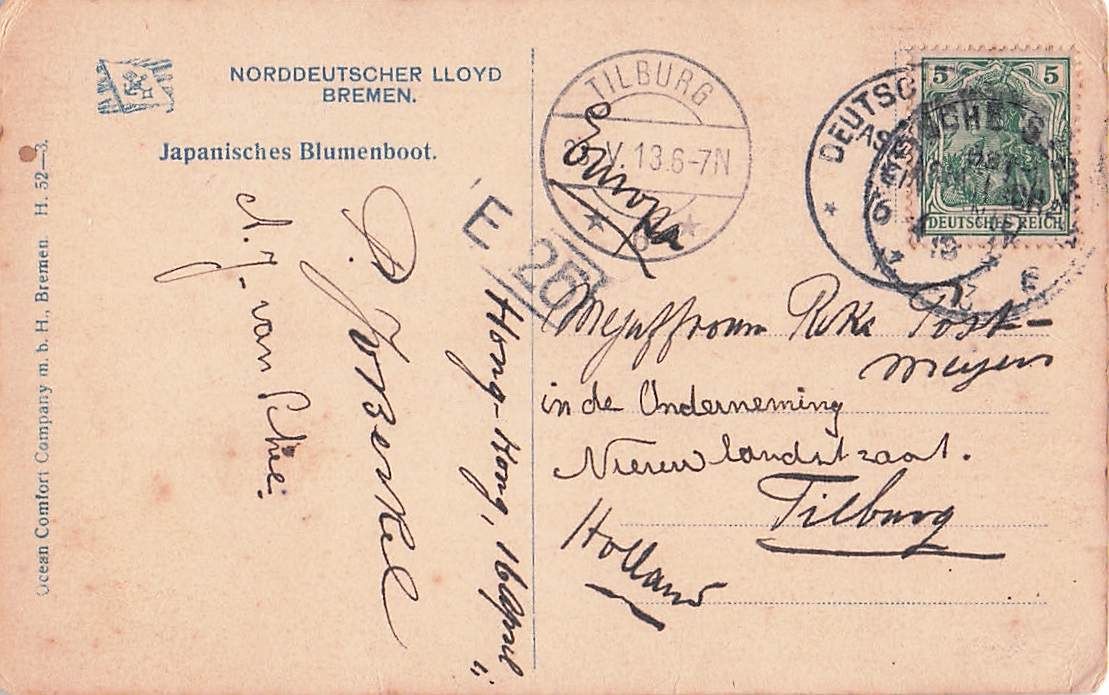 NORDDEUTSCHER LLOYD
BREMEN.
Japanisches Blumenboot.
Ocean Comfort Company m. b. H., Bremen. H. 52—3.
Hong-Hong, 16 April
A. J. van
P.
TILBURG
V.13.6-7N
E
DEUTSCHE
5 5
DEUTSCHES REICH
Mejuffrouw Post-
meyers
in de Onderneming
Nieuwlandstraat.
Tilburg
Holland